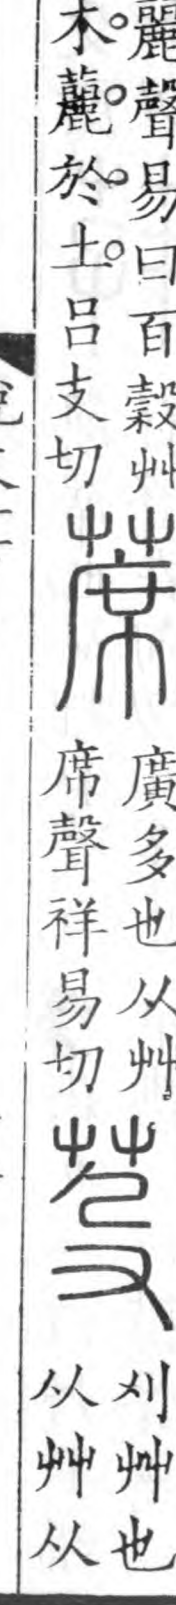 麗聲易曰百穀艸
木䕻於土呂支切
蓆
廣多也从艸
席聲祥易切
芟
刈艸也
从艸从